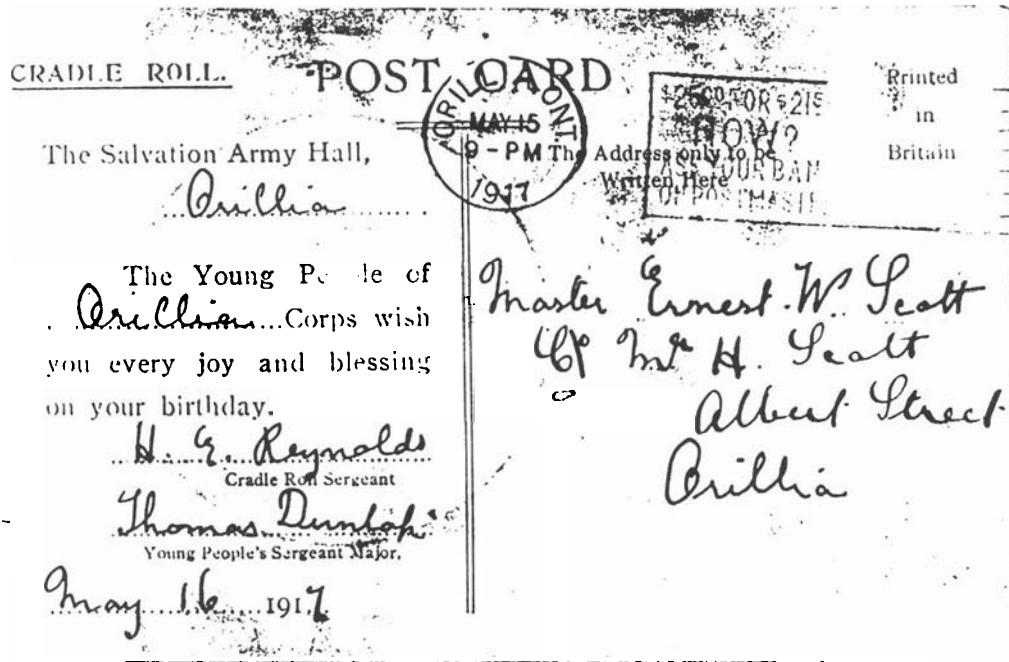 CRADLE ROLL.
POST CARD
Printed
in
Britain
ORILLIA ONT.
MAY 15
9 - PM
1917
$25.00 FOR $21
HOW?
ASK YOUR BAN
OR POSTMASTE
The Address only to be
Written Here
The Salvation Army Hall,
Orillia
The Young Pe le of
Orillia Corps wish
you every joy and blessing
on your birthday.
H. E. Reynolds
Cradle Roll Sergeant
Thomas Dunlop
Young People's Sergeant Major,
May 16 1917.
Master Ernest. W. Scott
C/o Mr H. Scott
Albert Street
Orillia